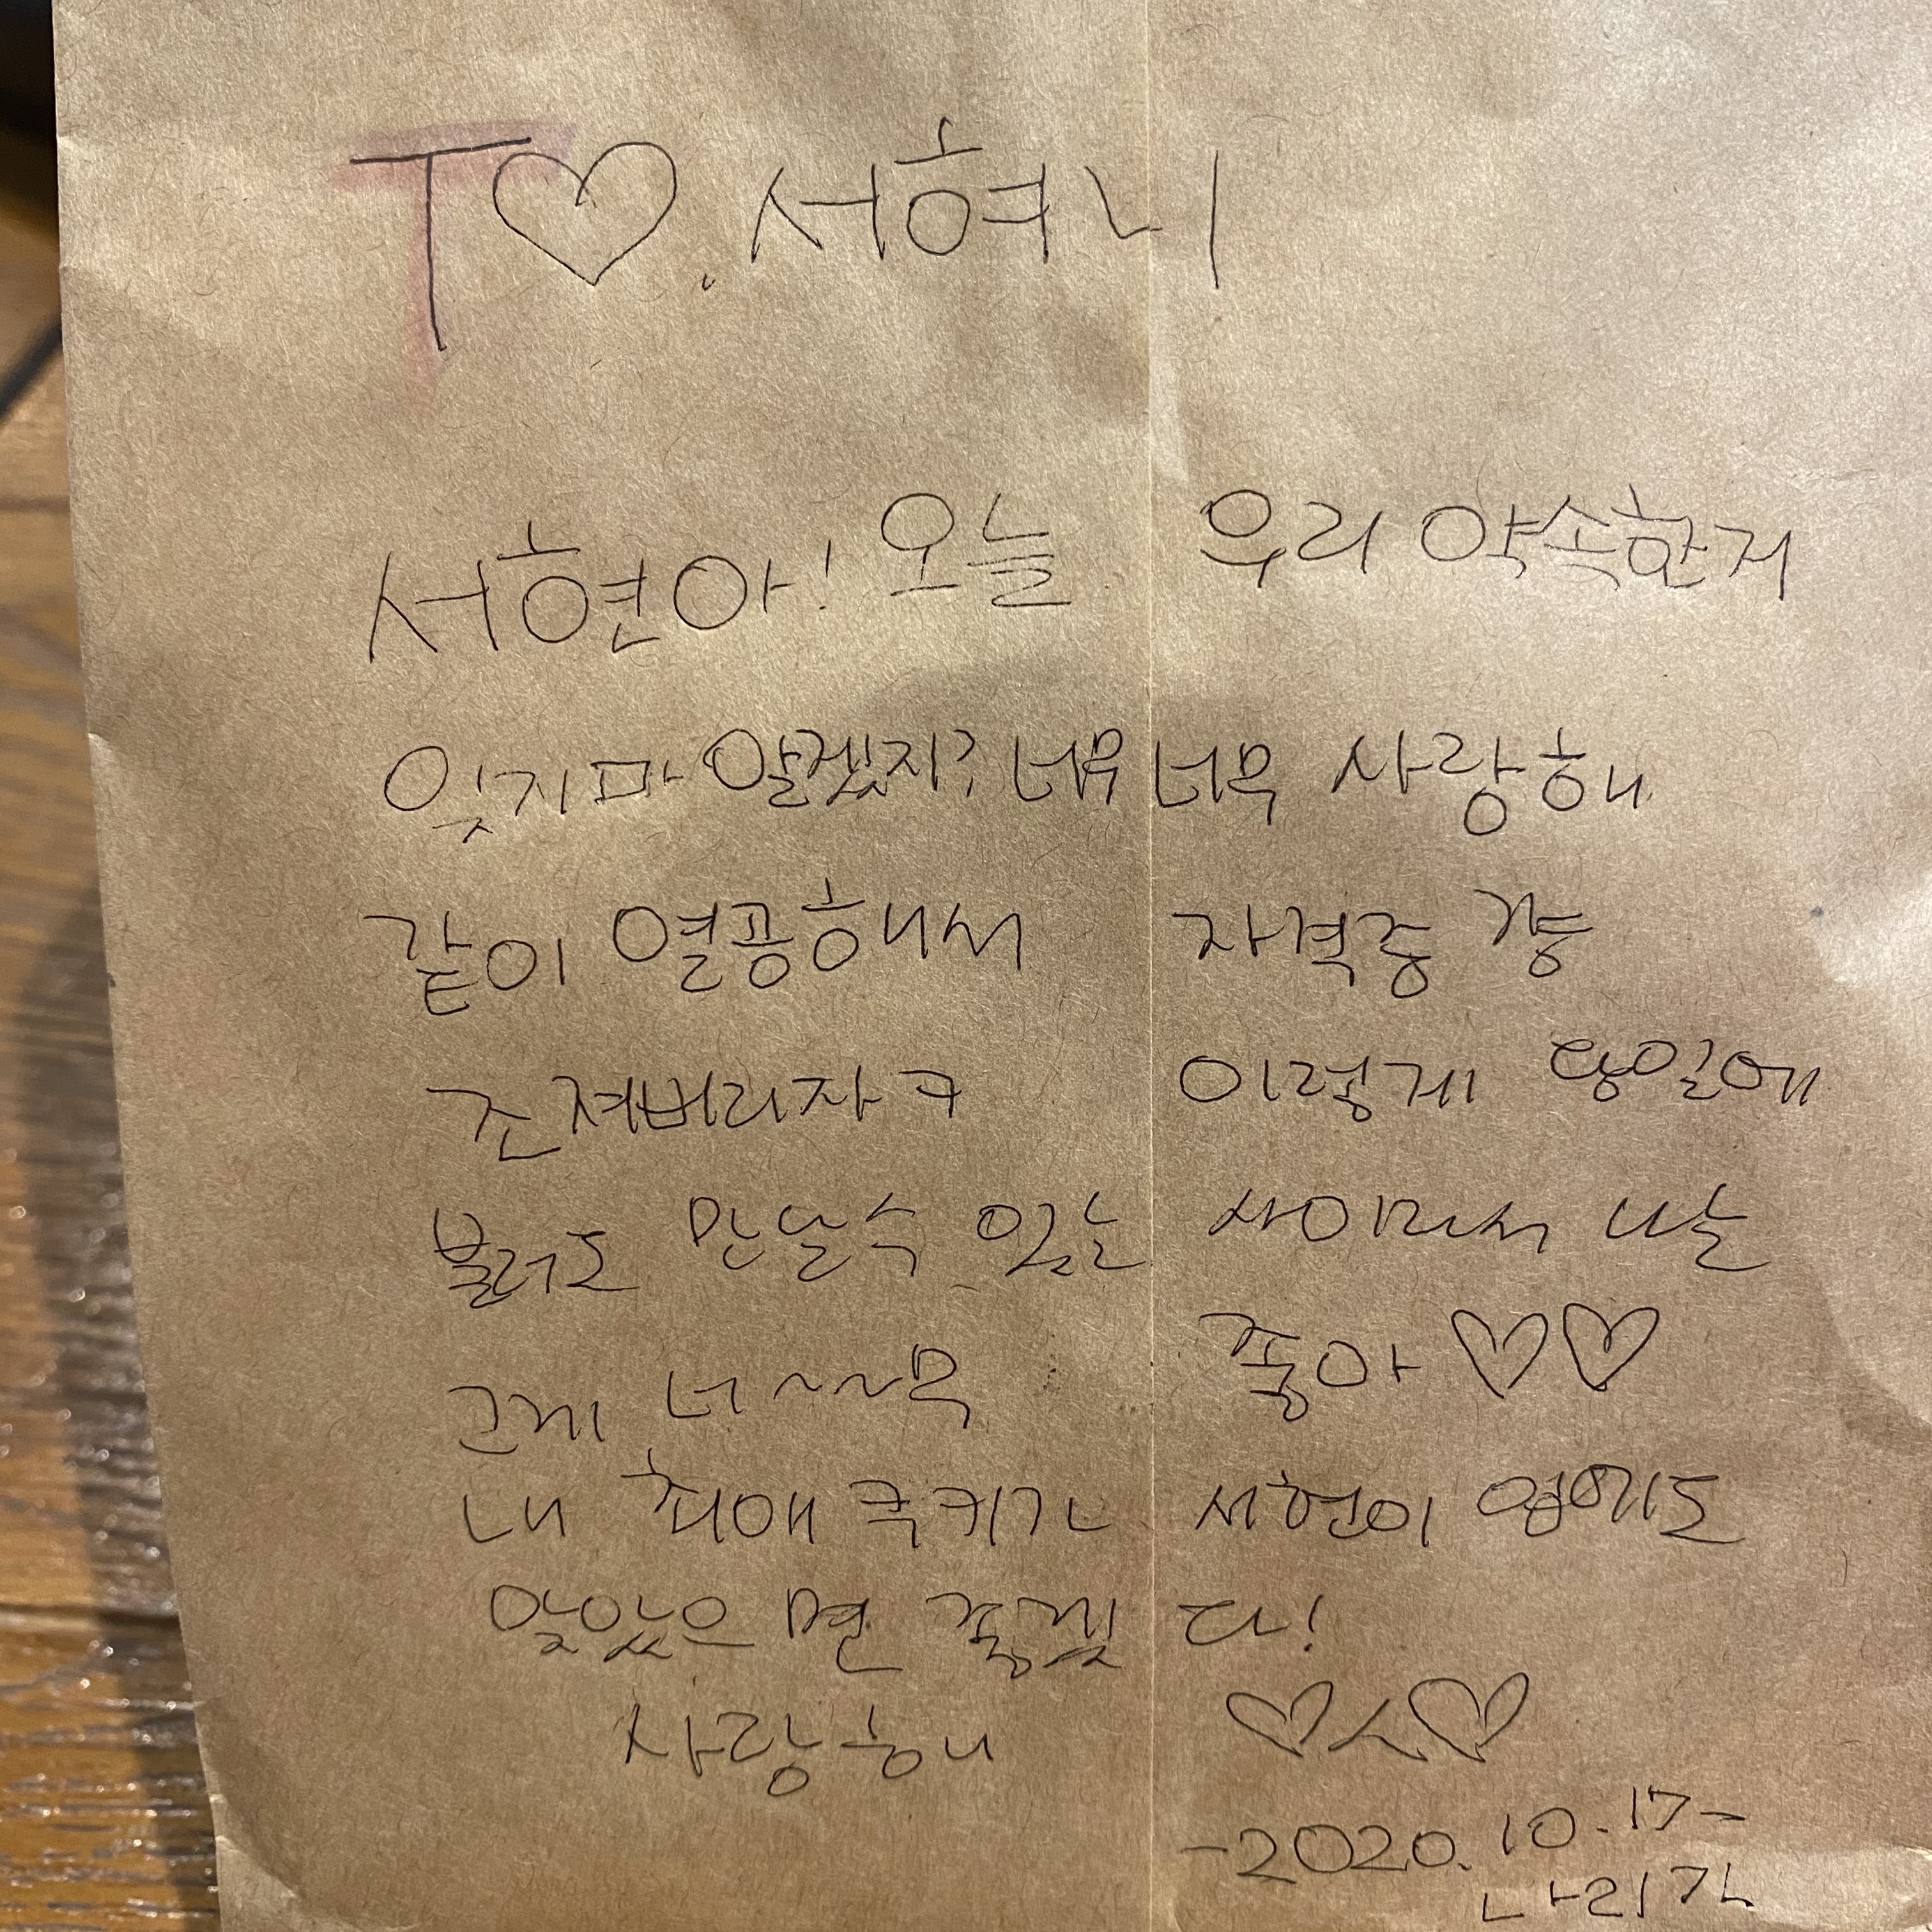 T♡. 서혀니
서현아! 오늘 우리 약속한거
잊지마 알겠지? 너무너무 사랑해
같이 열공해서 자격증 걍
조져버리자ㅋ 이렇게 당일에
불러도 만날수 있는 사이라서 나는
그게 너~~무 좋아♡♡
내 최애 쿠키가 서현이 입에도
맞았으면 좋겠다!
사랑해 ♡ㅅ♡
-2020.10.17-
나리가